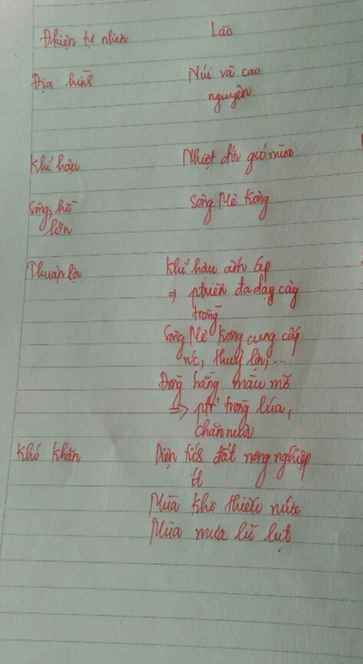 Điều kiện tự nhiên Lào
Địa hình Núi và cao
nguyên
Khí hậu Nhiệt đới gió mùa
Sông, hồ Sông Mê Kông
lớn
Thuận lợi Khí hậu ấm áp
⇒ ptriển đa dạng cây
trồng
Sông Mê Kông cung cấp
nc, thuỷ lợi,...
Đồng bằng màu mỡ
⇒ ptr trồng lúa,
chăn nuôi
Khó khăn Diện tích đất nông nghiệp
ít
Mùa khô thiếu nước
Mùa mưa lũ lụt